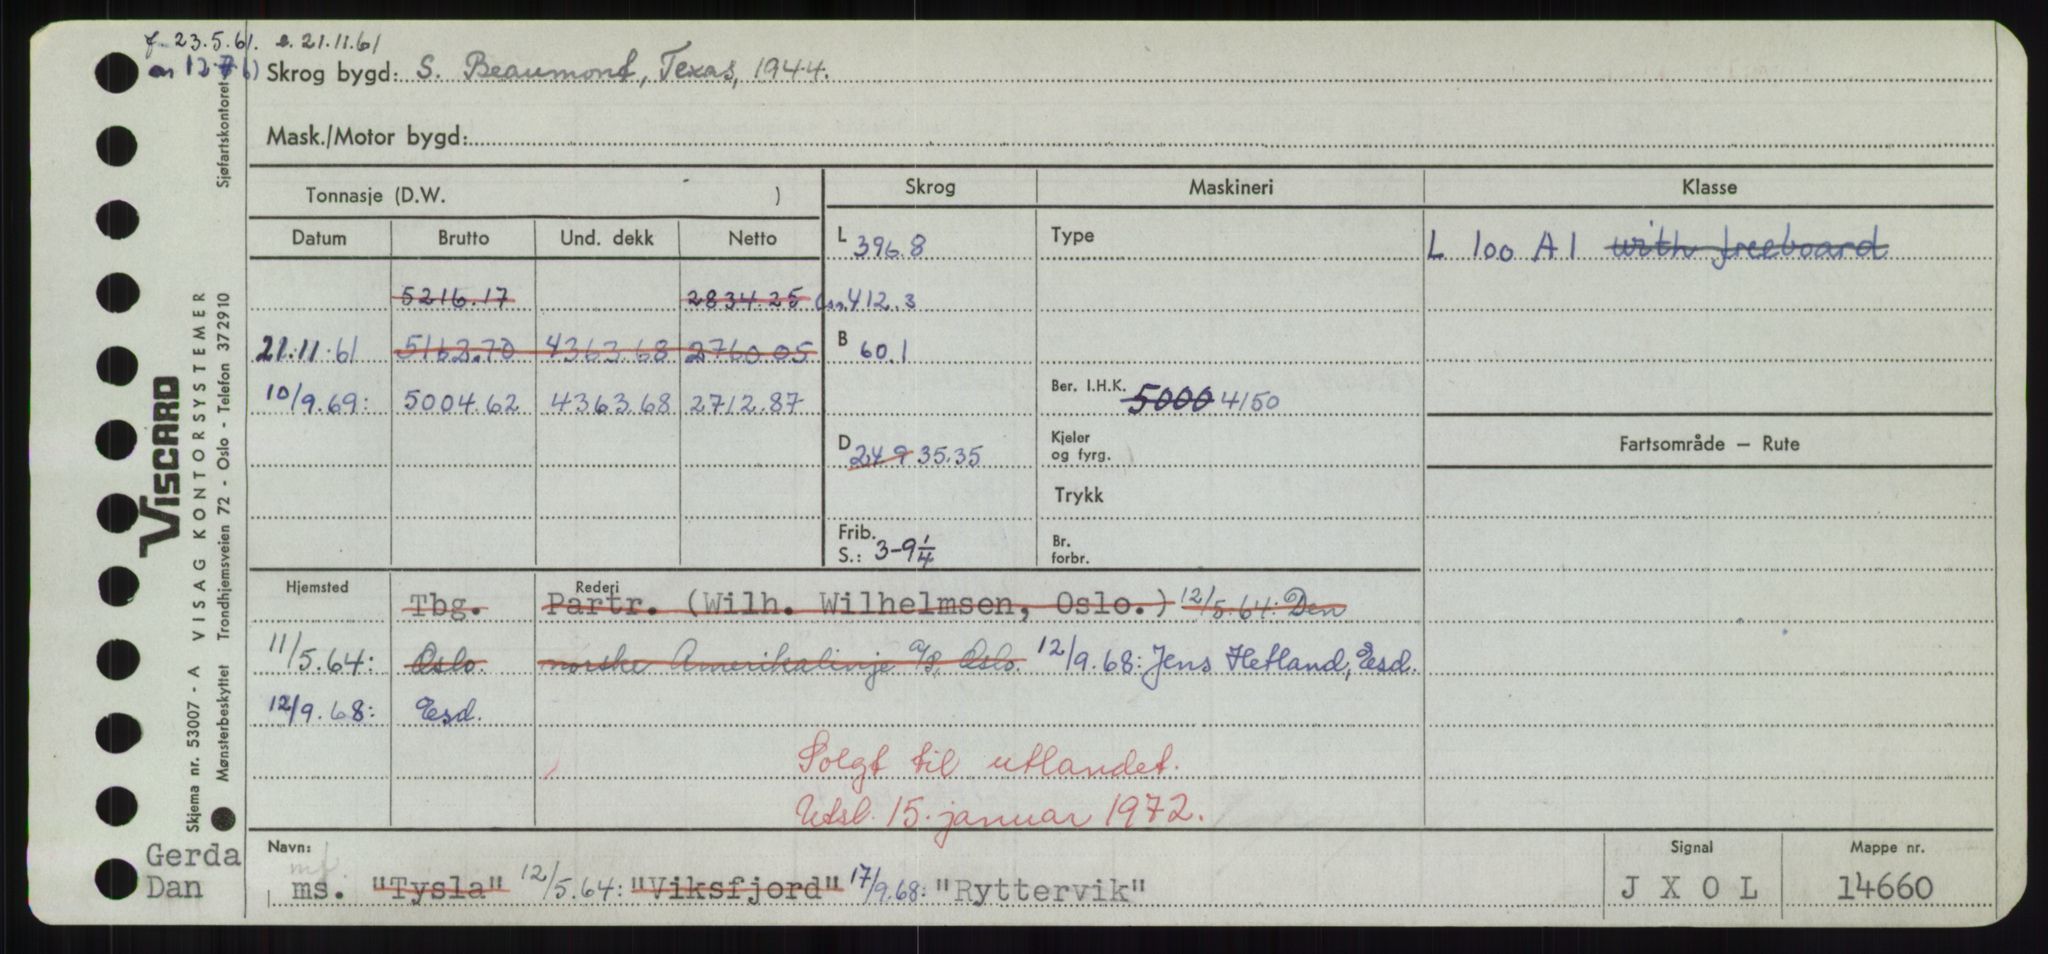 f 23.5.61. e. 21.11.61
Skrog bygd: S. Beaumont, Texas, 1944.
Mask./Motor bygd:
Tonnasje (D.W. )
Skrog Maskineri Klasse
Datum Brutto Und. dekk Netto
L 396.8 Type L 100 A1 with freeboard
5216.17 2834.25 412.3
21.11.61 5162.70 4363.68 2760.05 B 60.1
10/9.69: 5004.62 4363.68 2712.87 Ber. I.H.K. 5000 4150
D 24 9 35.35 Kjeler og fyrg. Fartsområde – Rute
Trykk
Frib. S.: 3-9 1/4 Br. forbr.
Hjemsted Rederi
Tbg. Partr. (Wilh. Wilhelmsen, Oslo.) 12/5.64: Den
11/5.64: Oslo. norske Amerikalinje A/S, Oslo. 12/9.68: Jens Hetland, Esd.
12/9.68: Esd.
Solgt til utlandet.
Utsl. 15. januar 1972.
Navn: Signal Mappe nr.
ms. "Tysla" 12/5.64: "Viksfjord" 17/9.68: "Ryttervik" J X O L 14660
Gerda
Dan
VISCARD
Skjema nr. 53007 - A VISAG KONTORSYSTEMER
Mønsterbeskyttet Trondhjemsveien 72 - Oslo - Telefon 372910
Sjøfartskontoret